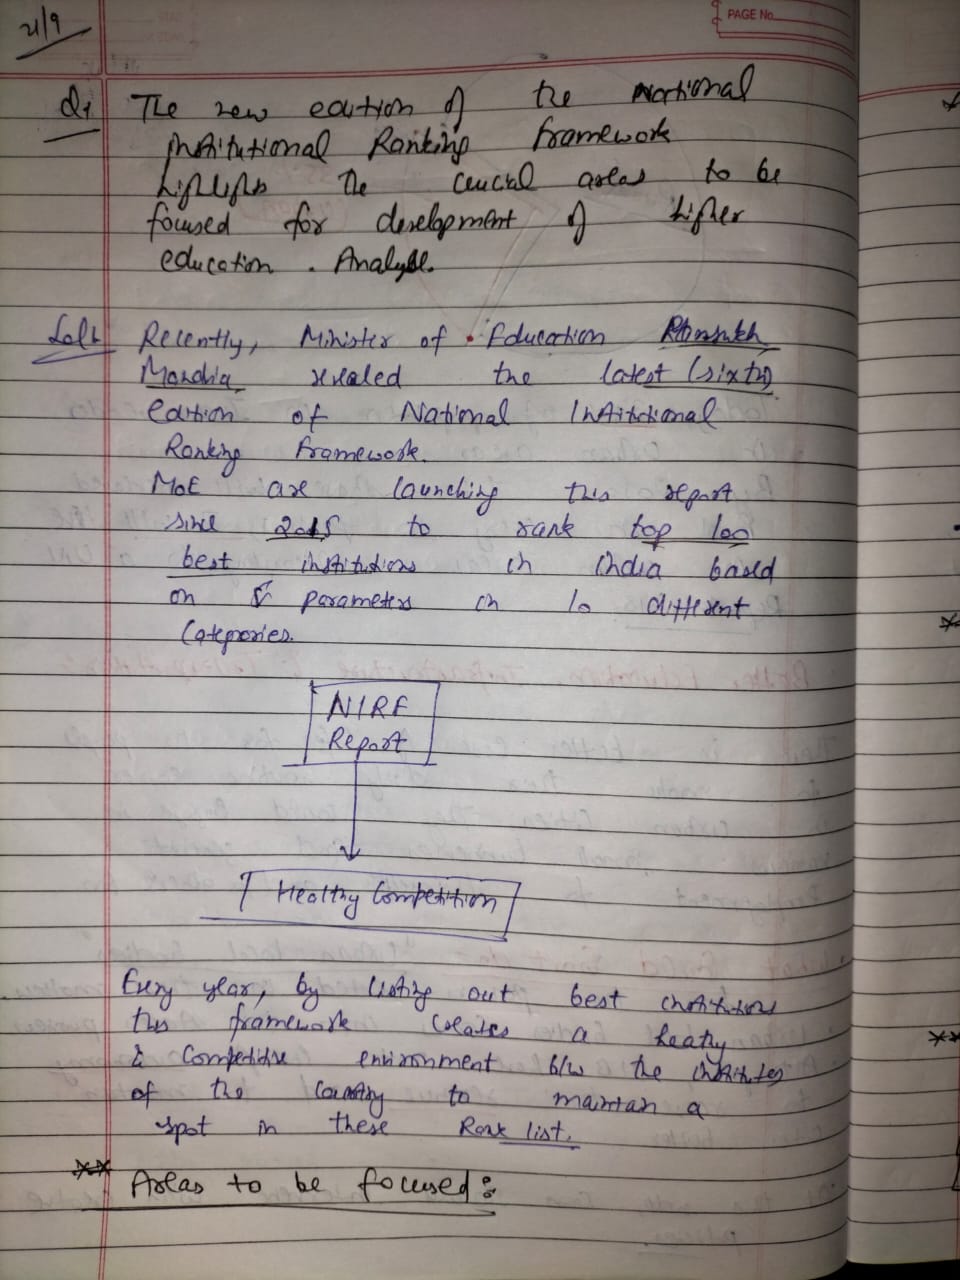 PAGE No.
21/9
Q1 The new edition of the National
Institutional Ranking Framework
highlights the crucial areas to be
focused for development of higher
education. Analyse.
Sol: Recently, Minister of Education Mansukh
Mandia revealed the latest (sixth)
edition of National Institutional
Ranking Framework.
MoE are launching this report
since 2015 to rank top 100
best institutions in India based
on 5 parameters in 10 different
Categories.
NIRF
Report
Healthy Competition
Every year, by listing out best institutions
this framework creates a heathy
& Competitive environment b/w the institutes
of the Country to maintan a
spot in these Rank list.
** Areas to be focused: